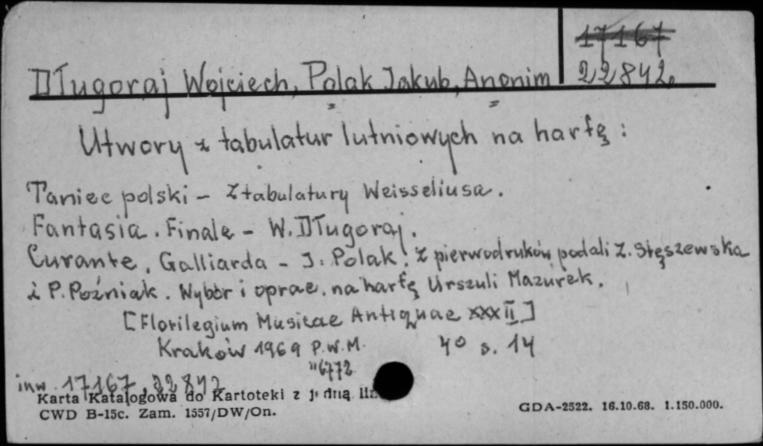 17167
Długoraj Wojciech, Polak Jakub, Anonim 22842.
Utwory z tabulatur lutniowych na harfę:
Taniec polski – Z tabulatury Weisseliusa.
Fantasia. Finale – W. Długoraj.
Curante, Galliarda – J. Polak. Z pierwodruków podali Z. Stęszewska
i P. Poźniak. Wybór i oprac. na harfę Urszuli Mazurek.
[Florilegium Musicae Antiquae XXXII]
Kraków 1969 P.W.M. 4° s. 14
"6772
inw. 17167, 22842
Karta Katalogowa do Kartoteki z
CWD B-15c. Zam. 1557/DW/On.
GDA-2522. 16.10.68. 1.150.000.